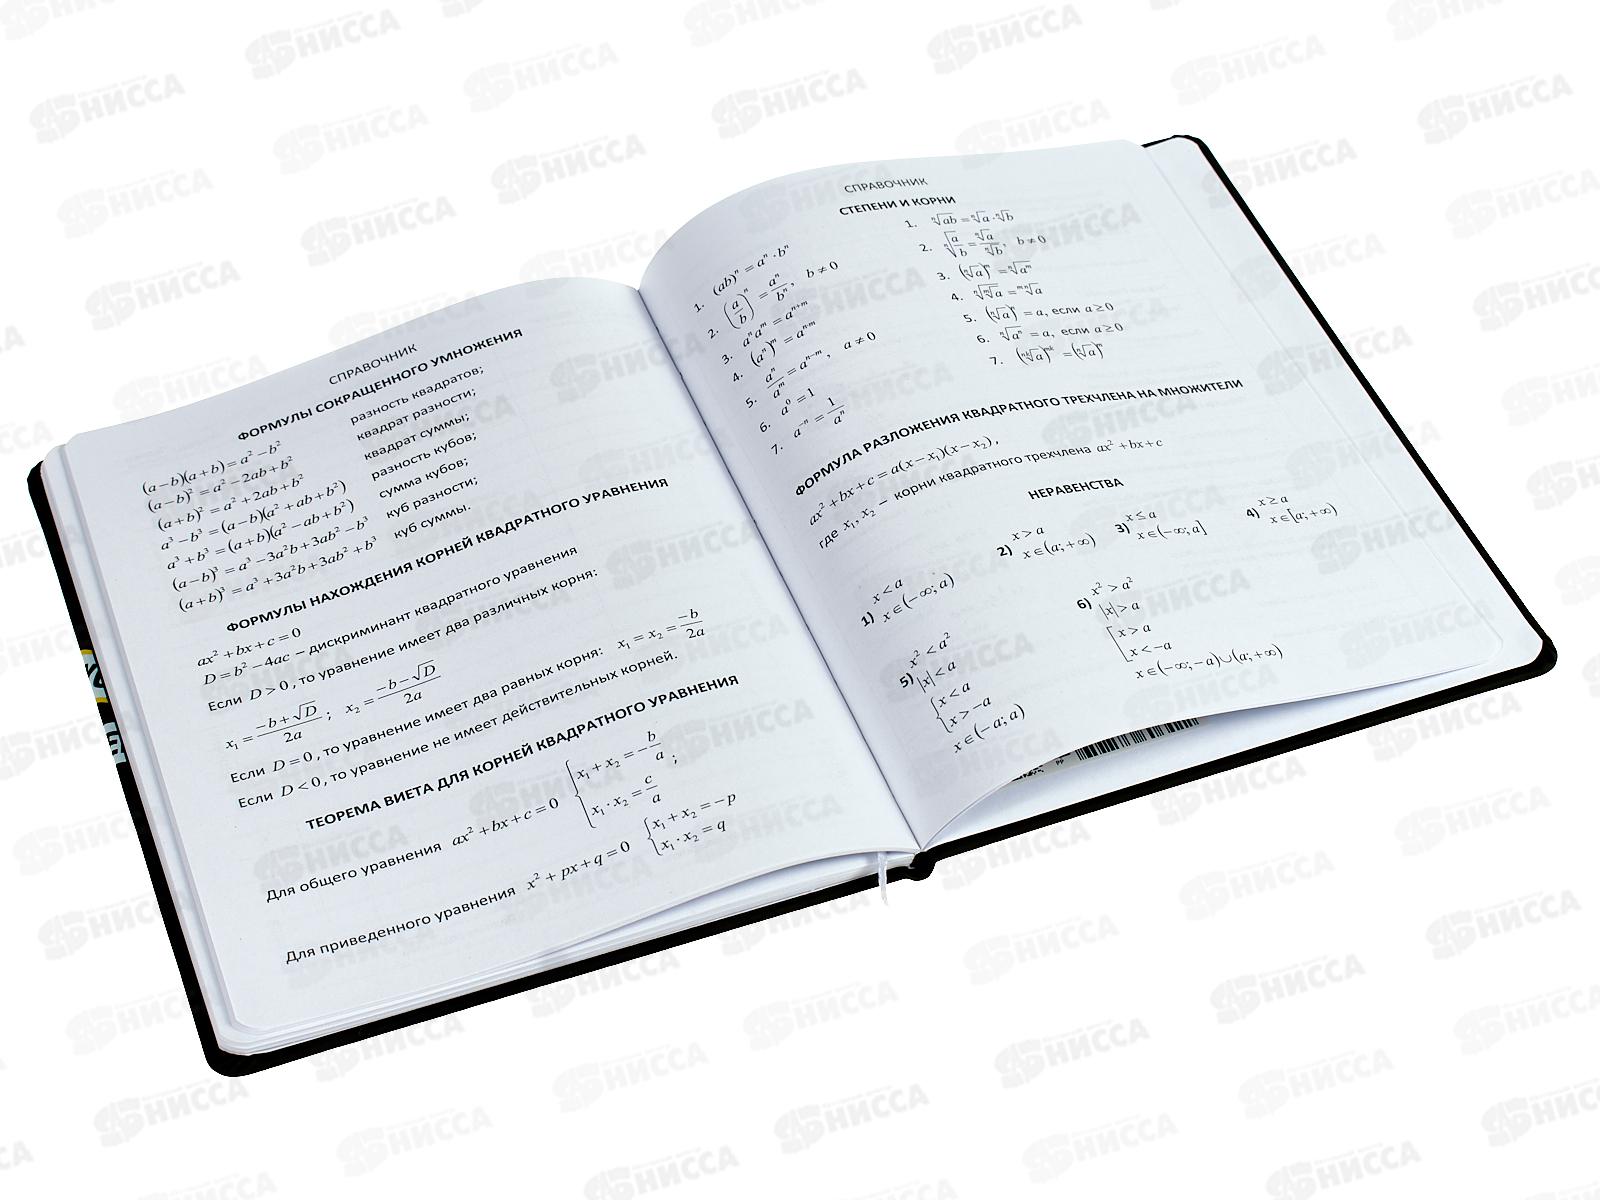 СПРАВОЧНИК
ФОРМУЛЫ СОКРАЩЕННОГО УМНОЖЕНИЯ
(a−b)(a+b)=a²−b² разность квадратов;
(a−b)²=a²−2ab+b² квадрат разности;
(a+b)²=a²+2ab+b² квадрат суммы;
a³−b³=(a−b)(a²+ab+b²) разность кубов;
a³+b³=(a+b)(a²−ab+b²) сумма кубов;
(a−b)³=a³−3a²b+3ab²−b³ куб разности;
(a+b)³=a³+3a²b+3ab²+b³ куб суммы.
ФОРМУЛЫ НАХОЖДЕНИЯ КОРНЕЙ КВАДРАТНОГО УРАВНЕНИЯ
ax²+bx+c=0
D=b²−4ac – дискриминант квадратного уравнения
Если D>0, то уравнение имеет два различных корня:
x₁=(−b+√D)/2a ; x₂=(−b−√D)/2a
Если D=0, то уравнение имеет два равных корня: x₁=x₂=−b/2a
Если D<0, то уравнение не имеет действительных корней.
ТЕОРЕМА ВИЕТА ДЛЯ КОРНЕЙ КВАДРАТНОГО УРАВНЕНИЯ
Для общего уравнения ax²+bx+c=0 { x₁+x₂=−b/a
x₁·x₂=c/a ;
Для приведенного уравнения x²+px+q=0 { x₁+x₂=−p
x₁·x₂=q
СПРАВОЧНИК
СТЕПЕНИ И КОРНИ
1. (ab)ⁿ=aⁿ·bⁿ
2. (a/b)ⁿ=aⁿ/bⁿ, b≠0
3. aⁿaᵐ=aⁿ⁺ᵐ
4. (aⁿ)ᵐ=aⁿ·ᵐ
5. aⁿ/aᵐ=aⁿ⁻ᵐ, a≠0
6. a⁰=1
7. a⁻ⁿ=1/aⁿ
1. ⁿ√ab=ⁿ√a·ⁿ√b
2. ⁿ√(a/b)=ⁿ√a/ⁿ√b, b≠0
3. (ⁿ√a)ᵐ=ⁿ√aᵐ
4. ⁿ√ᵐ√a=ᵐⁿ√a
5. (ⁿ√a)ⁿ=a, если a≥0
6. ⁿ√aⁿ=a, если a≥0
7. (ⁿᵏ√a)ᵐᵏ=(ⁿ√a)ᵐ
ФОРМУЛА РАЗЛОЖЕНИЯ КВАДРАТНОГО ТРЕХЧЛЕНА НА МНОЖИТЕЛИ
ax²+bx+c=a(x−x₁)(x−x₂),
где x₁, x₂ – корни квадратного трехчлена ax²+bx+c
НЕРАВЕНСТВА
1) x<a
x∈(−∞;a)
2) x>a
x∈(a;+∞)
3) x≤a
x∈(−∞;a]
4) x≥a
x∈[a;+∞)
5) x²<a²
|x|<a
{ x<a
x>−a
x∈(−a;a)
6) x²>a²
|x|>a
[ x>a
x<−a
x∈(−∞;−a)∪(a;+∞)
НИССА